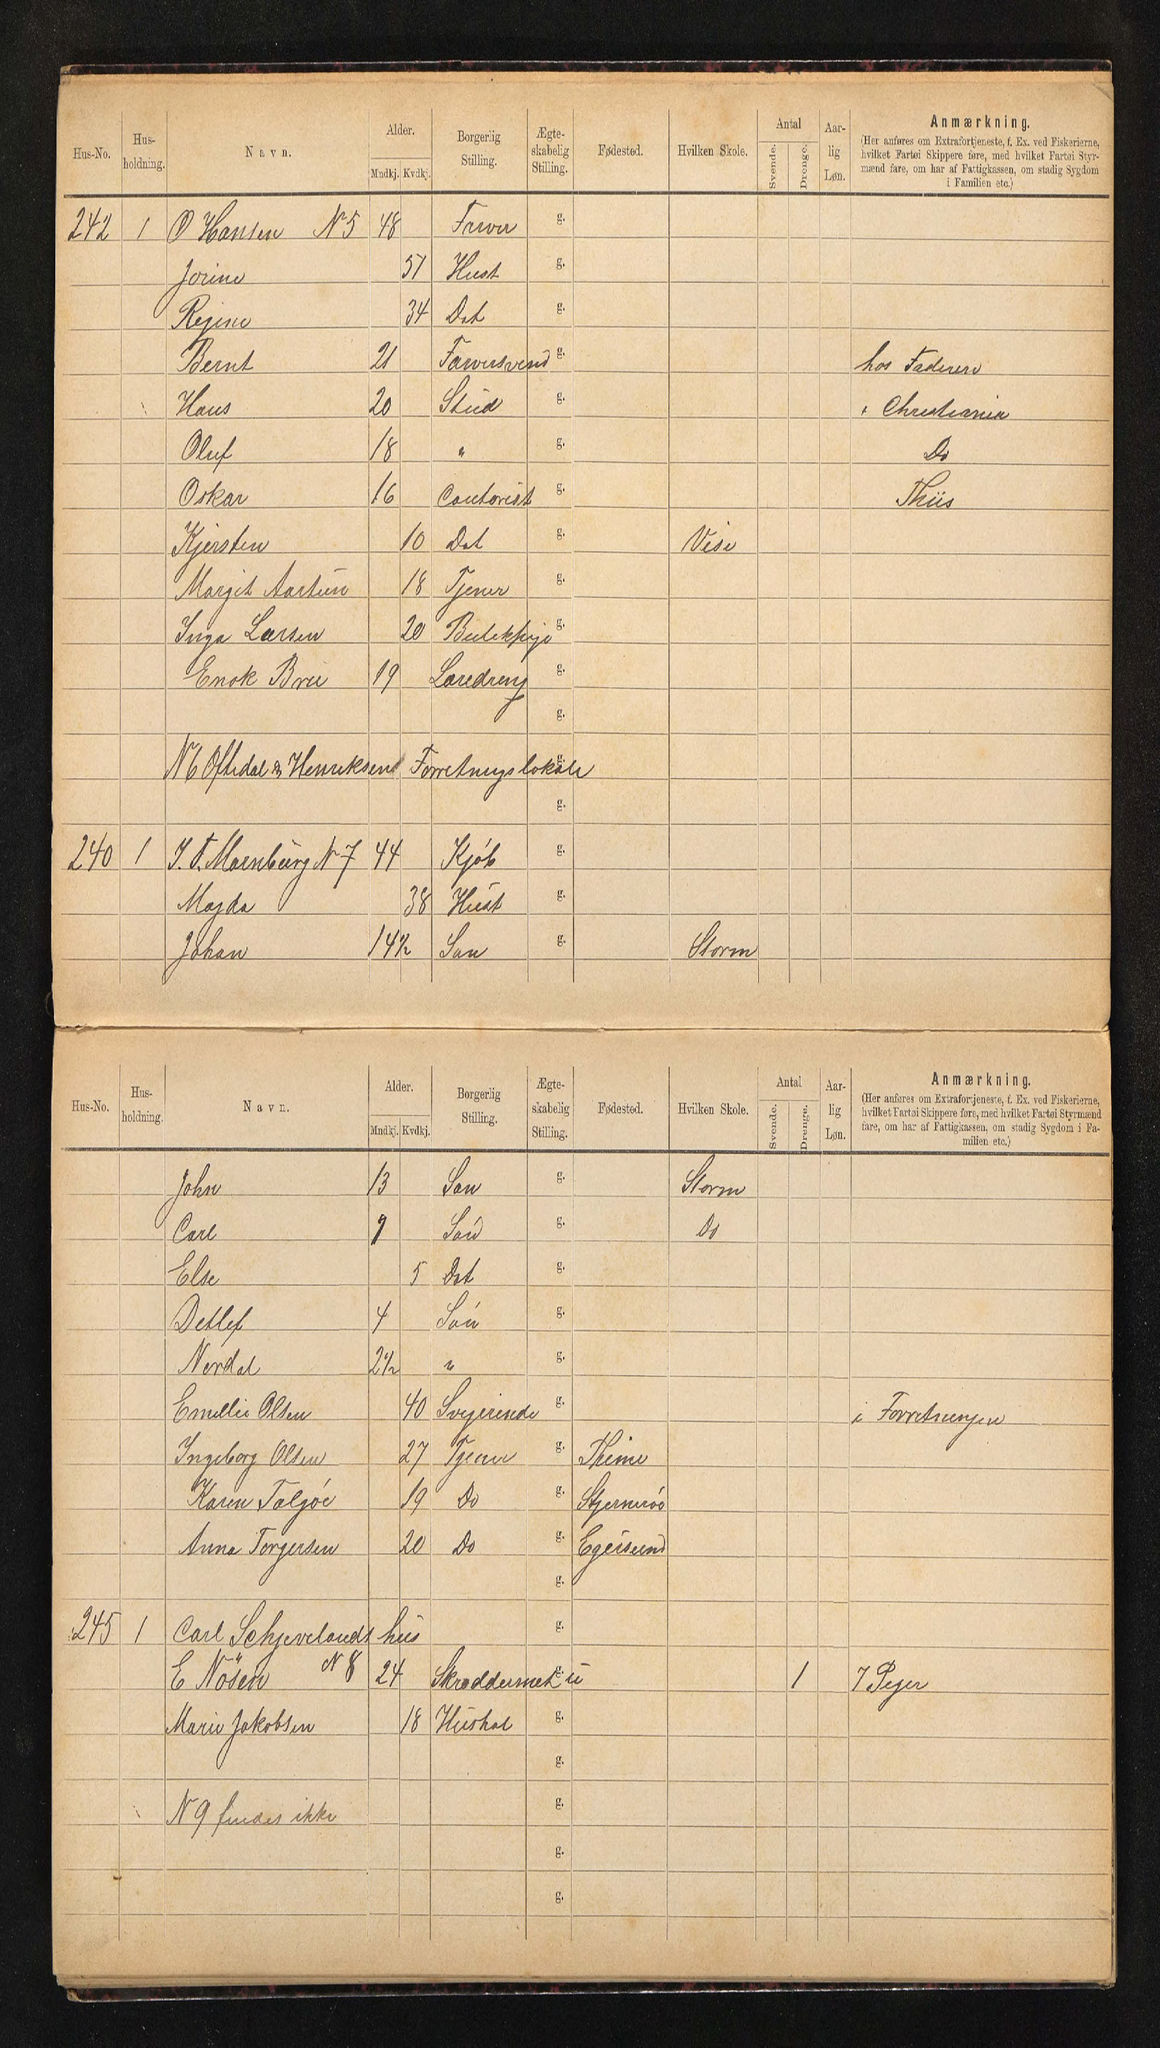 Hus-No. Hus-holdning. Navn. Alder. Mndkj. Kvdkj. Borgerlig Stilling. Ægte-skabelig Stilling. Fødested. Hvilken Skole. Antal Svende. Drenge. Aar-lig Løn. Anmærkning.
(Her anføres om Extrafortjeneste, f. Ex. ved Fiskerierne,
hvilket Fartøi Skippere føre, med hvilket Fartøi Styr-
mænd fare, om har af Fattigkassen, om stadig Sygdom
i Familien etc.)
242 1 O Hansen N 5 48 Farver g.
Jorine 51 Hust g.
Regine 34 Dat g.
Bernt 21 Farversvend g. hos Faderen
Hans 20 Stud g. i Christiania
Oluf 18 " g. Do
Oskar 16 Contorist g. Thiis
Kjersten 10 Dat g. Vise
Margit Aartun 18 Tjener g.
Inga Larsen 20 g.
Enok Brei 19 Læredreng g.
g.
N 6 Oftedal & Henriksens Forretningslokale g.
g.
240 1 J. T. Marnburg N 7 44 Kjøb g.
Magda 38 Hust g.
Johan 14½ Søn g. Storm
Hus-No. Hus-holdning. Navn. Alder. Mndkj. Kvdkj. Borgerlig Stilling. Ægte-skabelig Stilling. Fødested. Hvilken Skole. Antal Svende. Drenge. Aar-lig Løn. Anmærkning.
(Her anføres om Extrafortjeneste, f. Ex. ved Fiskerierne,
hvilket Fartøi Skippere føre, med hvilket Fartøi Styrmænd
fare, om har af Fattigkassen, om stadig Sygdom i Fa-
milien etc.)
John 13 Søn g. Storm
Carl 9 Søn g. Do
Else 5 Dat g.
Detlef 4 Søn g.
Nordal 2½ " g.
Emilie Olsen 40 Svigerinde g. i Forretningen
Ingeborg Olsen 27 Tjener g. Thime
Karen Taljøe 19 Do g. Stjernerøe
Anna Torgersen 20 Do g. Egersund
g.
245 1 Carl Schjevelands hus g.
E Nösen N 8 24 Skræddermest g. u 1 7 Piger
Marie Jakobsen 18 Hushol g.
g.
N 9 findes ikke g.
g.
g.